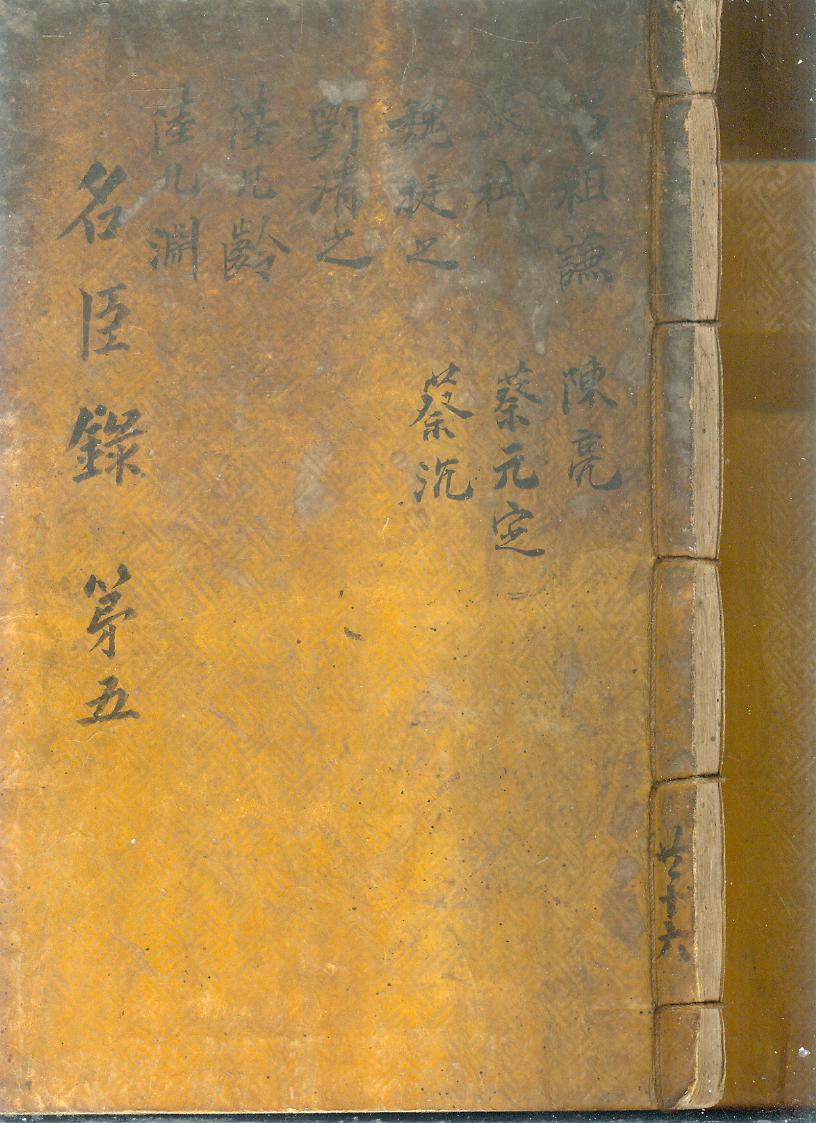 共十六
呂祖謙
張栻
魏挺之
劉清之
陸九齡
陸九淵
陳亮
蔡元定
蔡沉
名臣錄 第五